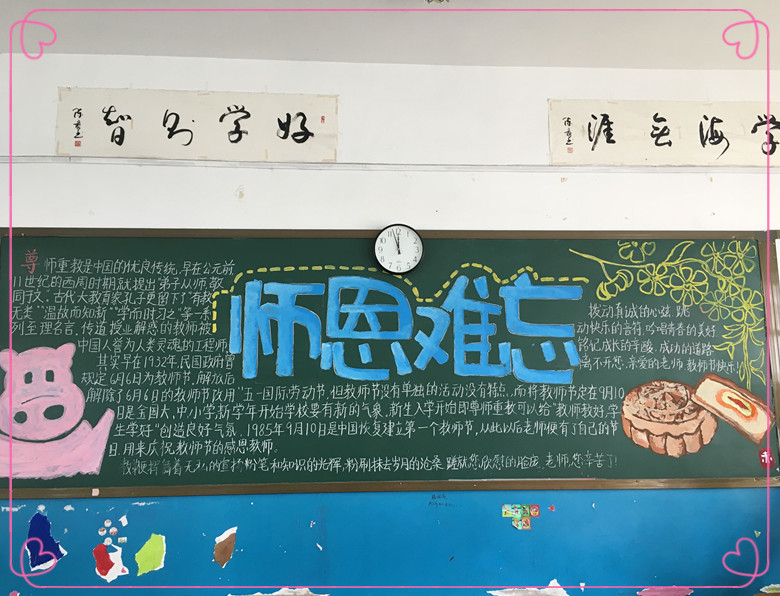 好学则智
学海无涯
师恩难忘
尊师重教是中国的优良传统,早在公元前
11世纪的西周时期就提出弟子从师敬
同于父;古代大教育家孔子更留下了"有教
无类""温故而知新""学而时习之"等一系
列至理名言,传道授业解惑的教师被
中国人誉为人类灵魂的工程师
其实早在1932年,民国政府曾
规定6月6日为教师节,解放后
解除了6月6日的教师节改用"五一国际劳动节,但教师节没有单独的活动没有特点,而将教师节定在9月10
日是全国大、中、小学新学年开始学校要有新的气象,新生入学开始即尊师重教可以给"教师教好,学
生学好"创造良好气氛。1985年9月10日是中国恢复建立第一个教师节,从此以后老师便有了自己的节
日,用来庆祝教师节的感恩教师。
和知识的光辉,粉刷抹去岁月的沧桑
老师,您辛苦了!
拨动真诚的心弦,跳
动快乐的音符,吟唱青春的美好
铭记成长的辛酸,成功的道路
离不开您,亲爱的老师,教师节快乐!
12
1
2
3
4
5
6
7
8
9
10
11